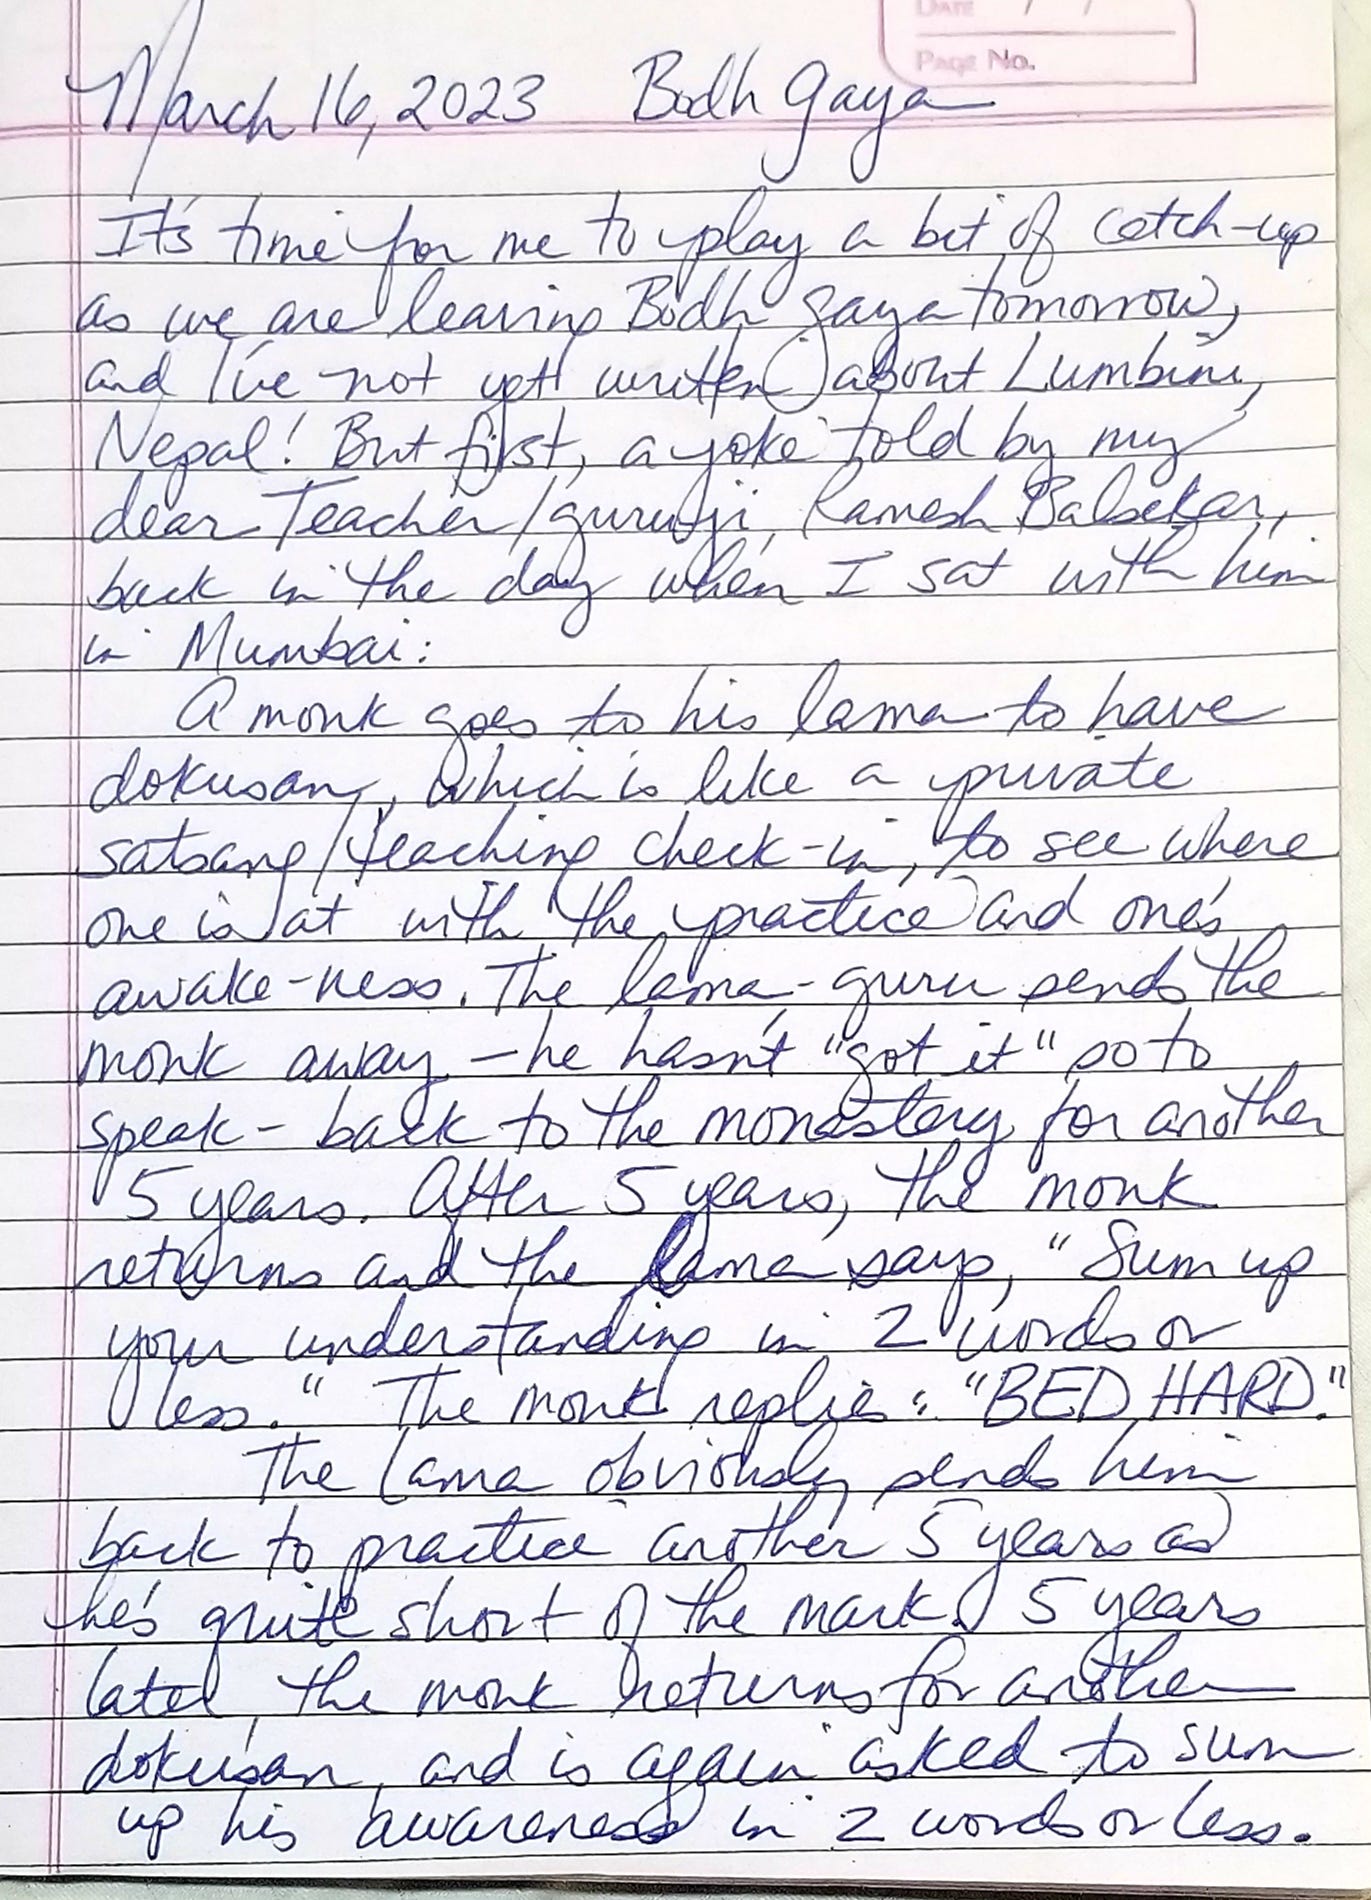 DATE / /
PAGE No.
March 16, 2023 Bodh Gaya
It's time for me to play a bit of catch-up
as we are leaving Bodh Gaya tomorrow,
and I've not yet written about Lumbini,
Nepal! But first, a joke told by my
dear Teacher/guruji, Ramesh Balsekar,
back in the day when I sat with him
in Mumbai:
A monk goes to his lama to have
dokusan, which is like a private
satsang/teaching check-in, to see where
one is at with the practice and one's
awake-ness. The lama-guru sends the
monk away - he hasn't "got it" so to
speak - back to the monastery for another
5 years. After 5 years, the monk
returns and the lama says, "Sum up
your understanding in 2 words or
less." The monk replies: "BED HARD."
The lama obviously sends him
back to practice another 5 years as
he's quite short of the mark. 5 years
later, the monk returns for another
dokusan, and is again asked to sum
up his awareness in 2 words or less.